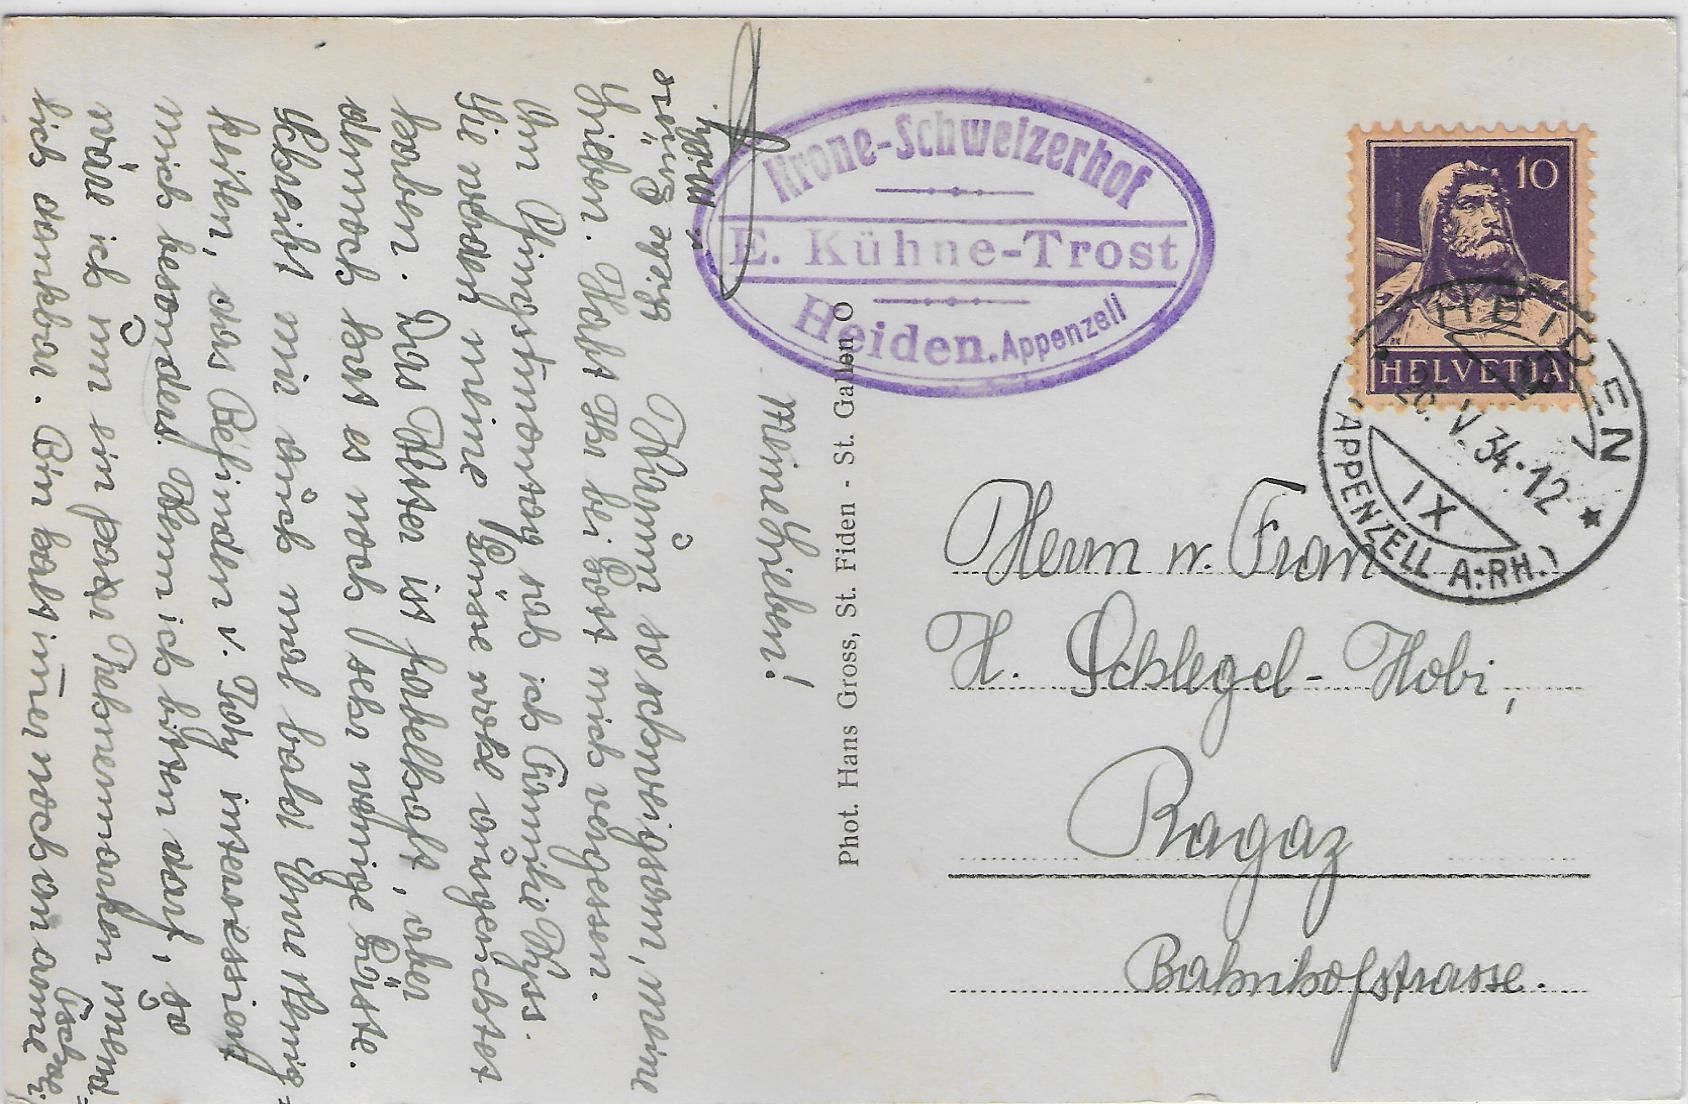 Meine Lieben!
Warum so schweigsam, meine
Lieben. Habt Ihr bei Gott mich vergessen.
Am Pfingstmontag sah ich Familie Wyss.
Sie haben meine Grüsse wohl ausgerichtet
haben. Das Wetter ist fabelhaft, aber
dennoch hat es noch sehr wenige Gäste.
Schreibt mir auch mal bald Eure Neuig=
keiten, das Befinden v. Roby interessiert
mich besonders. Wenn ich bitten darf, so
wäre ich um ein paar Rabattmarken
dankbar. Bin halt immer noch
Krone-Schweizerhof
E. Kühne-Trost
Heiden. Appenzell
Phot. Hans Gross, St. Fiden - St. Gallen O
10
HELVETIA
HEIDEN
26. V. 34. 12
IX
(APPENZELL A.RH.)
Herrn u. Frau
H. Schlegel-Hobi,
Ragaz
Bahnhofstrasse.